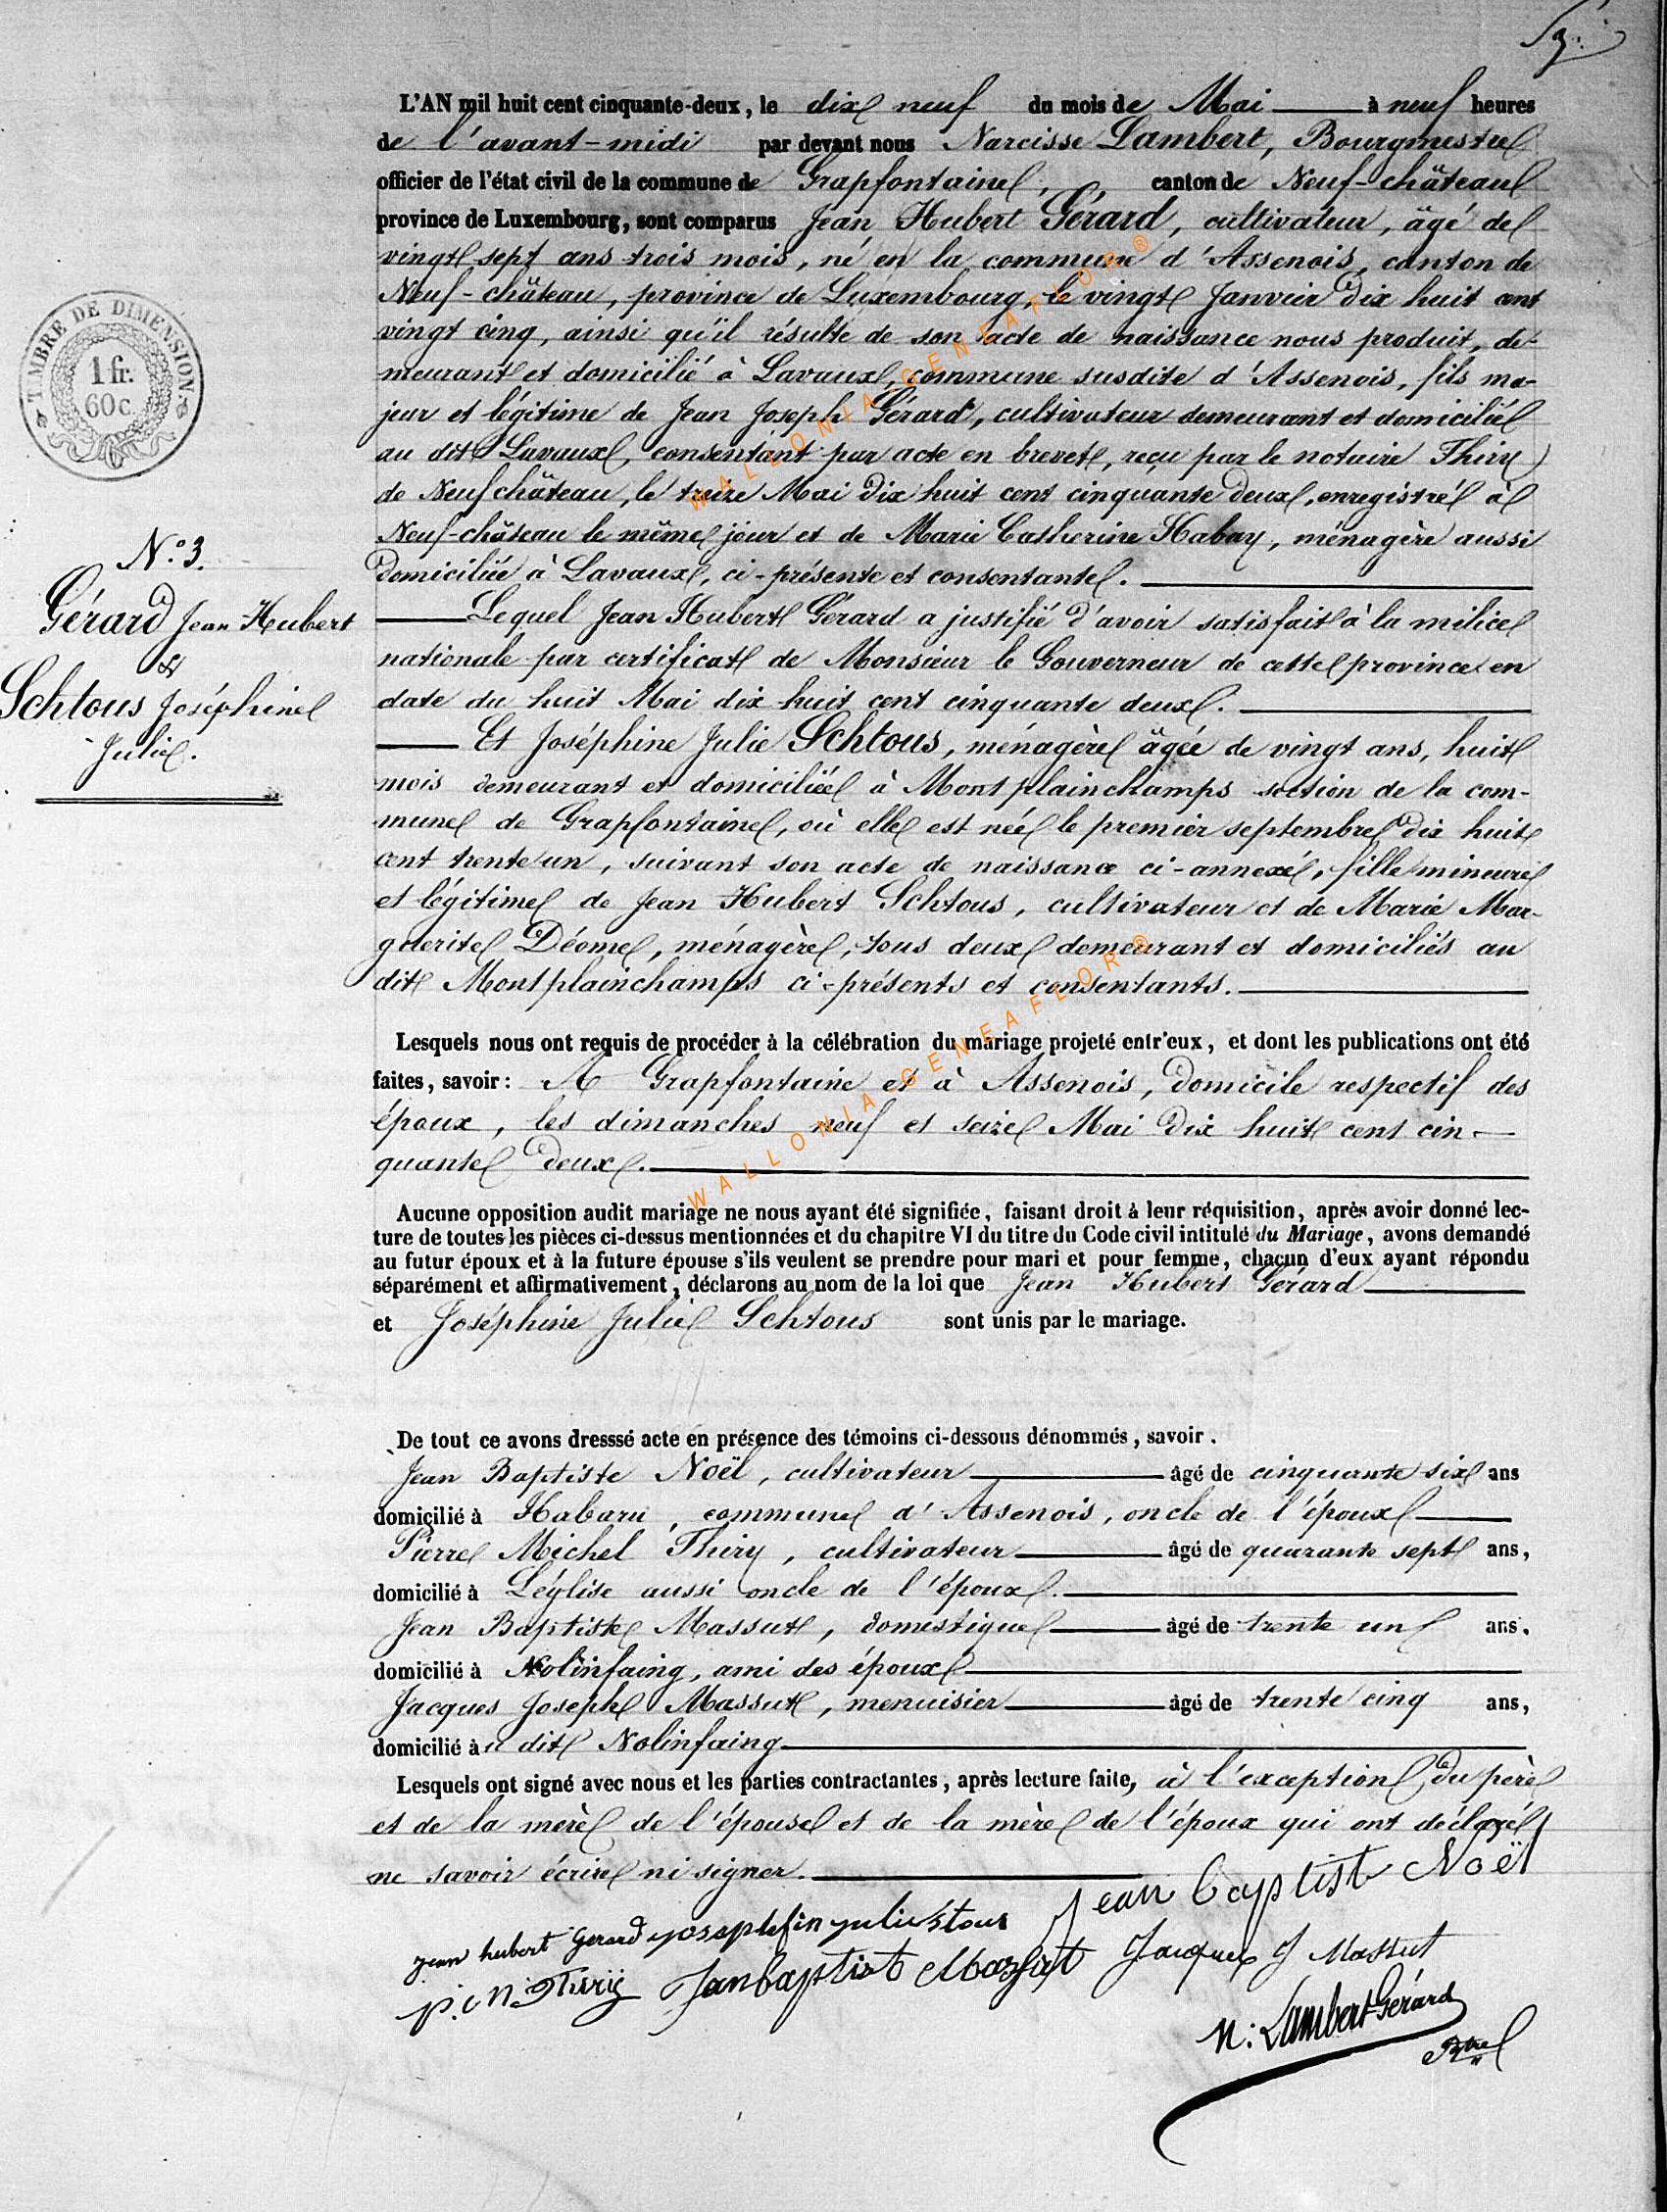 L'AN mil huit cent cinquante-deux, le dix neuf du mois de Mai à neuf heures
de l'avant-midi par devant nous Narcisse Lambert, Bourgmestre
officier de l'état civil de la commune de Grapfontaine, canton de Neuf-château
province de Luxembourg, sont comparus Jean Hubert Gérard, cultivateur, âgé de
vingt sept ans trois mois, né en la commune d'Assenois, canton de
Neuf-château, province de Luxembourg, le vingt Janvier dix huit cent
vingt cinq, ainsi qu'il résulte de son acte de naissance nous produit, de-
meurant et domicilié à Lavaux, commune susdite d'Assenois, fils ma-
jeur et légitime de Jean Joseph Gérard, cultivateur demeurant et domicilié
au dit Lavaux, consentant par acte en brevet, reçu par le notaire Thiry
de Neufchâteau, le treize Mai dix huit cent cinquante deux, enregistré à
Neuf-château le même jour et de Marie Catherine Habay, ménagère aussi
domiciliée à Lavaux, ci-présente et consentante.
Lequel Jean Hubert Gérard a justifié d'avoir satisfait à la milice
nationale par certificat de Monsieur le Gouverneur de cette province en
date du huit Mai dix huit cent cinquante deux.
Et Joséphine Julie Schtous, ménagère âgée de vingt ans, huit
mois demeurant et domiciliée à Montplainchamps section de la com-
mune de Grapfontaine, où elle est née le premier septembre dix huit
cent trente un, suivant son acte de naissance ci-annexé, fille mineure
et légitime de Jean Hubert Schtous, cultivateur et de Marie Mar-
guerite Déome, ménagère, tous deux demeurant et domiciliés au
dit Montplainchamps ci-présents et consentants.
Lesquels nous ont requis de procéder à la célébration du mariage projeté entr'eux, et dont les publications ont été
faites, savoir: A Grapfontaine et à Assenois, domicile respectif des
époux, les dimanches neuf et seize Mai dix huit cent cin-
quante deux.
Aucune opposition audit mariage ne nous ayant été signifiée, faisant droit à leur réquisition, après avoir donné lec-
ture de toutes les pièces ci-dessus mentionnées et du chapitre VI du titre du Code civil intitulé du Mariage, avons demandé
au futur époux et à la future épouse s'ils veulent se prendre pour mari et pour femme, chacun d'eux ayant répondu
séparément et affirmativement, déclarons au nom de la loi que Jean Hubert Gérard
et Joséphine Julie Schtous sont unis par le mariage.
De tout ce avons dresssé acte en présence des témoins ci-dessous dénommés, savoir.
Jean Baptiste Noël, cultivateur âgé de cinquante six ans
domicilié à Habaru, commune d'Assenois, oncle de l'époux
Pierre Michel Thiry, cultivateur âgé de quarante sept ans,
domicilié à Léglise aussi oncle de l'époux.
Jean Baptiste Massut, domestique âgé de trente un ans.
domicilié à Nolinfaing, ami des époux
Jacques Joseph Massut, menuisier âgé de trente cinq ans,
domicilié à u dit Nolinfaing
Lesquels ont signé avec nous et les parties contractantes, après lecture faite, à l'exception du père
et de la mère de l'épouse et de la mère de l'époux qui ont déclaré
ne savoir écrire ni signer.
Jean Baptist Noël
jean hubert Gerard josephfin julie stous
Jacques J Massut
p. m. Thiry Janbaptist Massut
N: Lambert-Gérard
Btre
TIMBRE DE DIMENSION.
1 fr.
60 c.
N.° 3.
Gérard Jean Hubert
&
Schtous Joséphine
Julie.
WALLONIA-GENEAFLOR®
WALLONIA-GENEAFLOR®